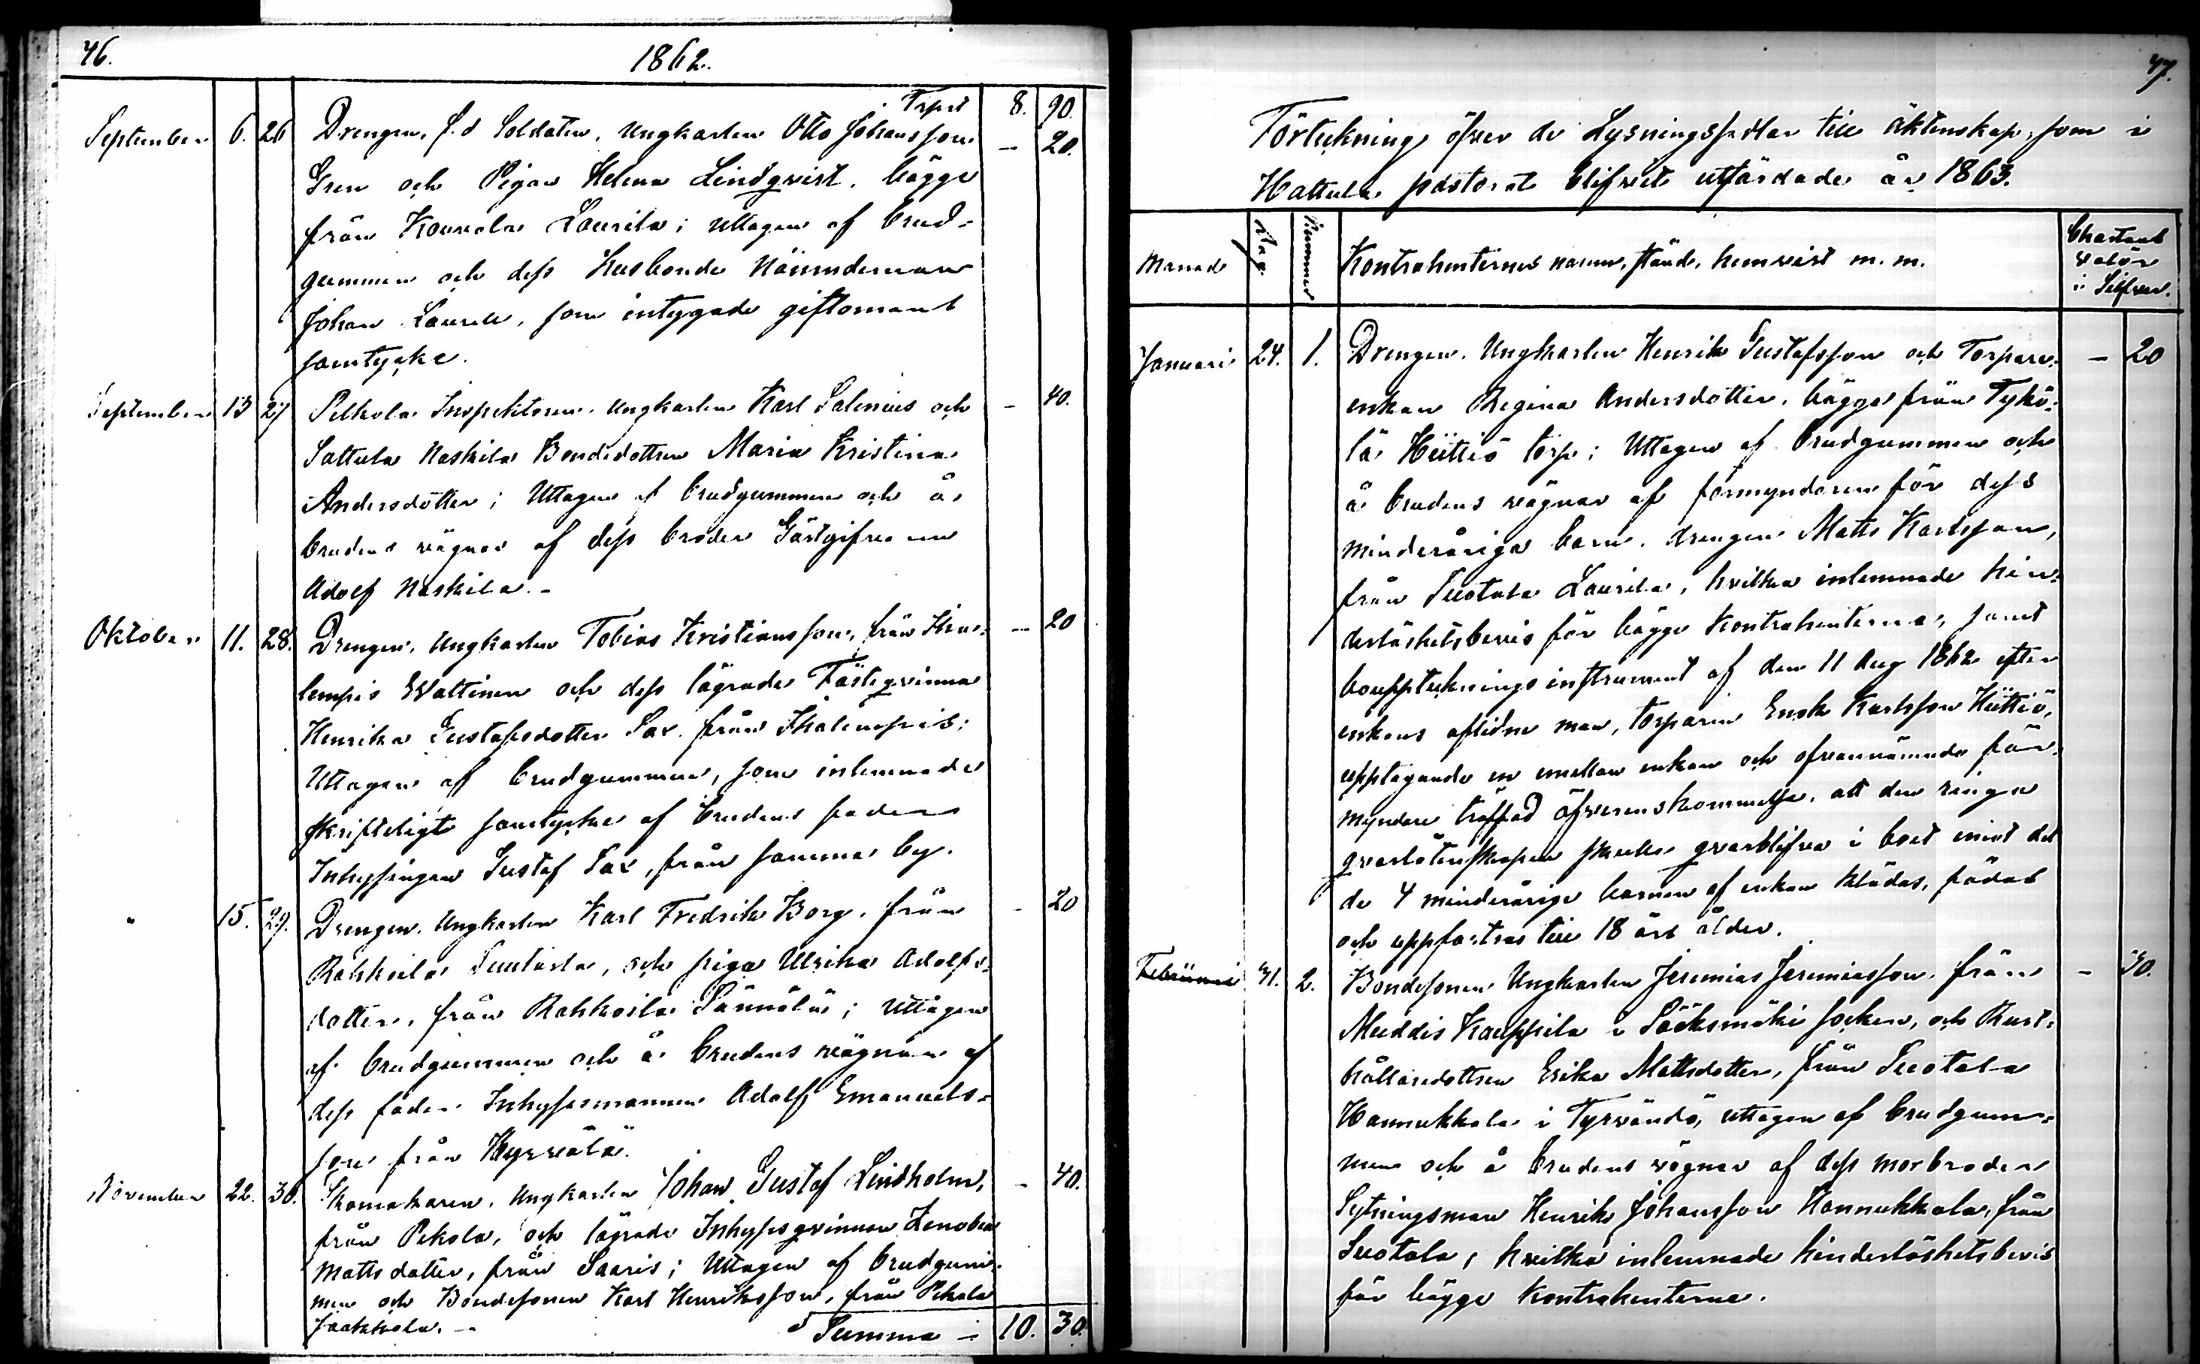 46.
1862.
Trpt 8. 90.
September 6. 26 Drengen, f.d Soldaten, Ungkarlen Otto Johansson — 20.
Gren och Pigan Helena Lindqvist, bägge
från Kouvala Laurila; uttagen af brud-
gummen och dess Husbonde Nämndeman
Johan Laurila, som intygade giftomans
samtycke.
September 13 27 Pelkola Inspektoren, Ungkarlen Karl Salenius och — 40.
Sattula Naskila Bondedottren Maria Kristina
Andersdotter; Uttagen af brudgummen och å
brudens vägnar af dess broder Gästgifvaren
Adolf Naskila.-
Oktober 11. 28. Drengen, Ungkarlen Tobias Kristiansson, från — 20
Wattinen och dess lägrade Fästeqvinna
Henrika Gustafsdotter Sax, från
Uttagen af brudgummen, som inlemnade
skrifteligt samtycke af brudens fader
Inhysingen Gustaf Sax, från samma by.
" 15. 29. Drengen, Ungkarlen Karl Fredrik Borg, från - 20
Rahkoila, och piga Ulrika Adolfs-
dotter, från Rahkoila; Uttagen
af brudgummen och å brudens vägnar af
dess fader Inhysesmannen Adolf Emanuels-
son från Hyrvälä.
November 22. 30. Skomakaren, Ungkarlen Johan Gustaf Lindholm, - 40.
från Pekola, och lägrade Inhysesqvinnan Zenobia
Mattsdotter, från Saaris; Uttagen af brudgum-
men och Bondesonen Karl Henriksson, från Pekola
Jaakkola. —
Summa — 10. 30.
47.
Förteckning öfver de Lysningssedlar till äktenskap, som i
Hattula pastorat blifvit utfärdade år 1863.
Månad Dag. Nummer Kontrahenternes namn, stånd, hemvist m. m. Chartaut valör i Silfver.
Januari 24. 1. Drengen, Ungkarlen Henrik Gustafsson och Torpare- — 20
enkan Regina Andersdotter, bägge från Tykö-
lä Hiittiö torp; Uttagen af brudgummen och
å brudens vägnar af förmyndaren för dess
minderåriga barn, drengen Matts Karlsson,
från Suotala Laurila, hvilka inlemnade hin-
derlöshetsbevis för bägge Kontrahenterna, samt
bouppteckningsinstrument af den 11 Aug 1862 efter
enkans aflidne man, torparen Enok Karlsson Hiittiö,
upptagande en emellan enkan och ofvannämnde för-
myndare träffad öfverenskommelse, att den ringa
qvarlåtenskapen skulle qvarblifva i boet emot det
de 4 minderåriga barnen af enkan klädas, födas
och uppfostras till 18 års ålder.
Februari 31. 2. Bondesonen Ungkarlen Jeremias Jeremiasson, från — 30.
Muddis Kauppila i Sääksmäki socken, och Rust-
hållaredottren Erika Mattsdotter, från Suotala
Hannukkala i Tyrväntö, uttagen af brudgum-
men och å brudens vägnar af dess morbroder
Sytningsman Henrik Johansson Hannukkala, från
Suotala, hvilka inlemnade hinderlöshetsbevis
för bägge Kontrahenterne.